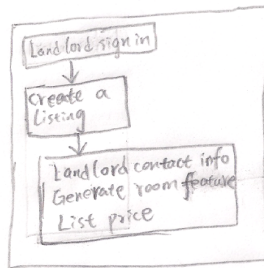 Landlord sign in
Create a
Listing
Landlord contact info
Generate room feature
List price